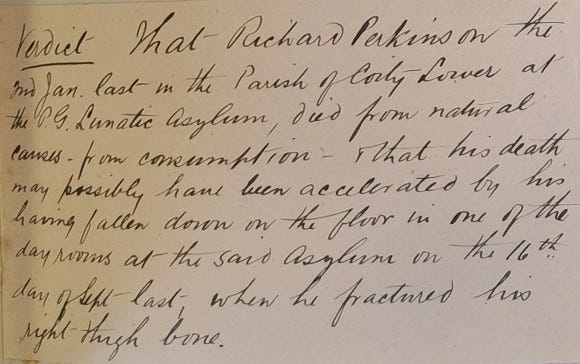 Verdict That Richard Perkins on the
2nd Jan. last in the Parish of Coity Lower at
the P.G. Lunatic Asylum, died from natural
causes - from consumption - & that his death
may possibly have been accelerated by his
having fallen down on the floor in one of the
day rooms at the said Asylum on the 16th
day of Sept last, when he fractured his
right thigh bone.